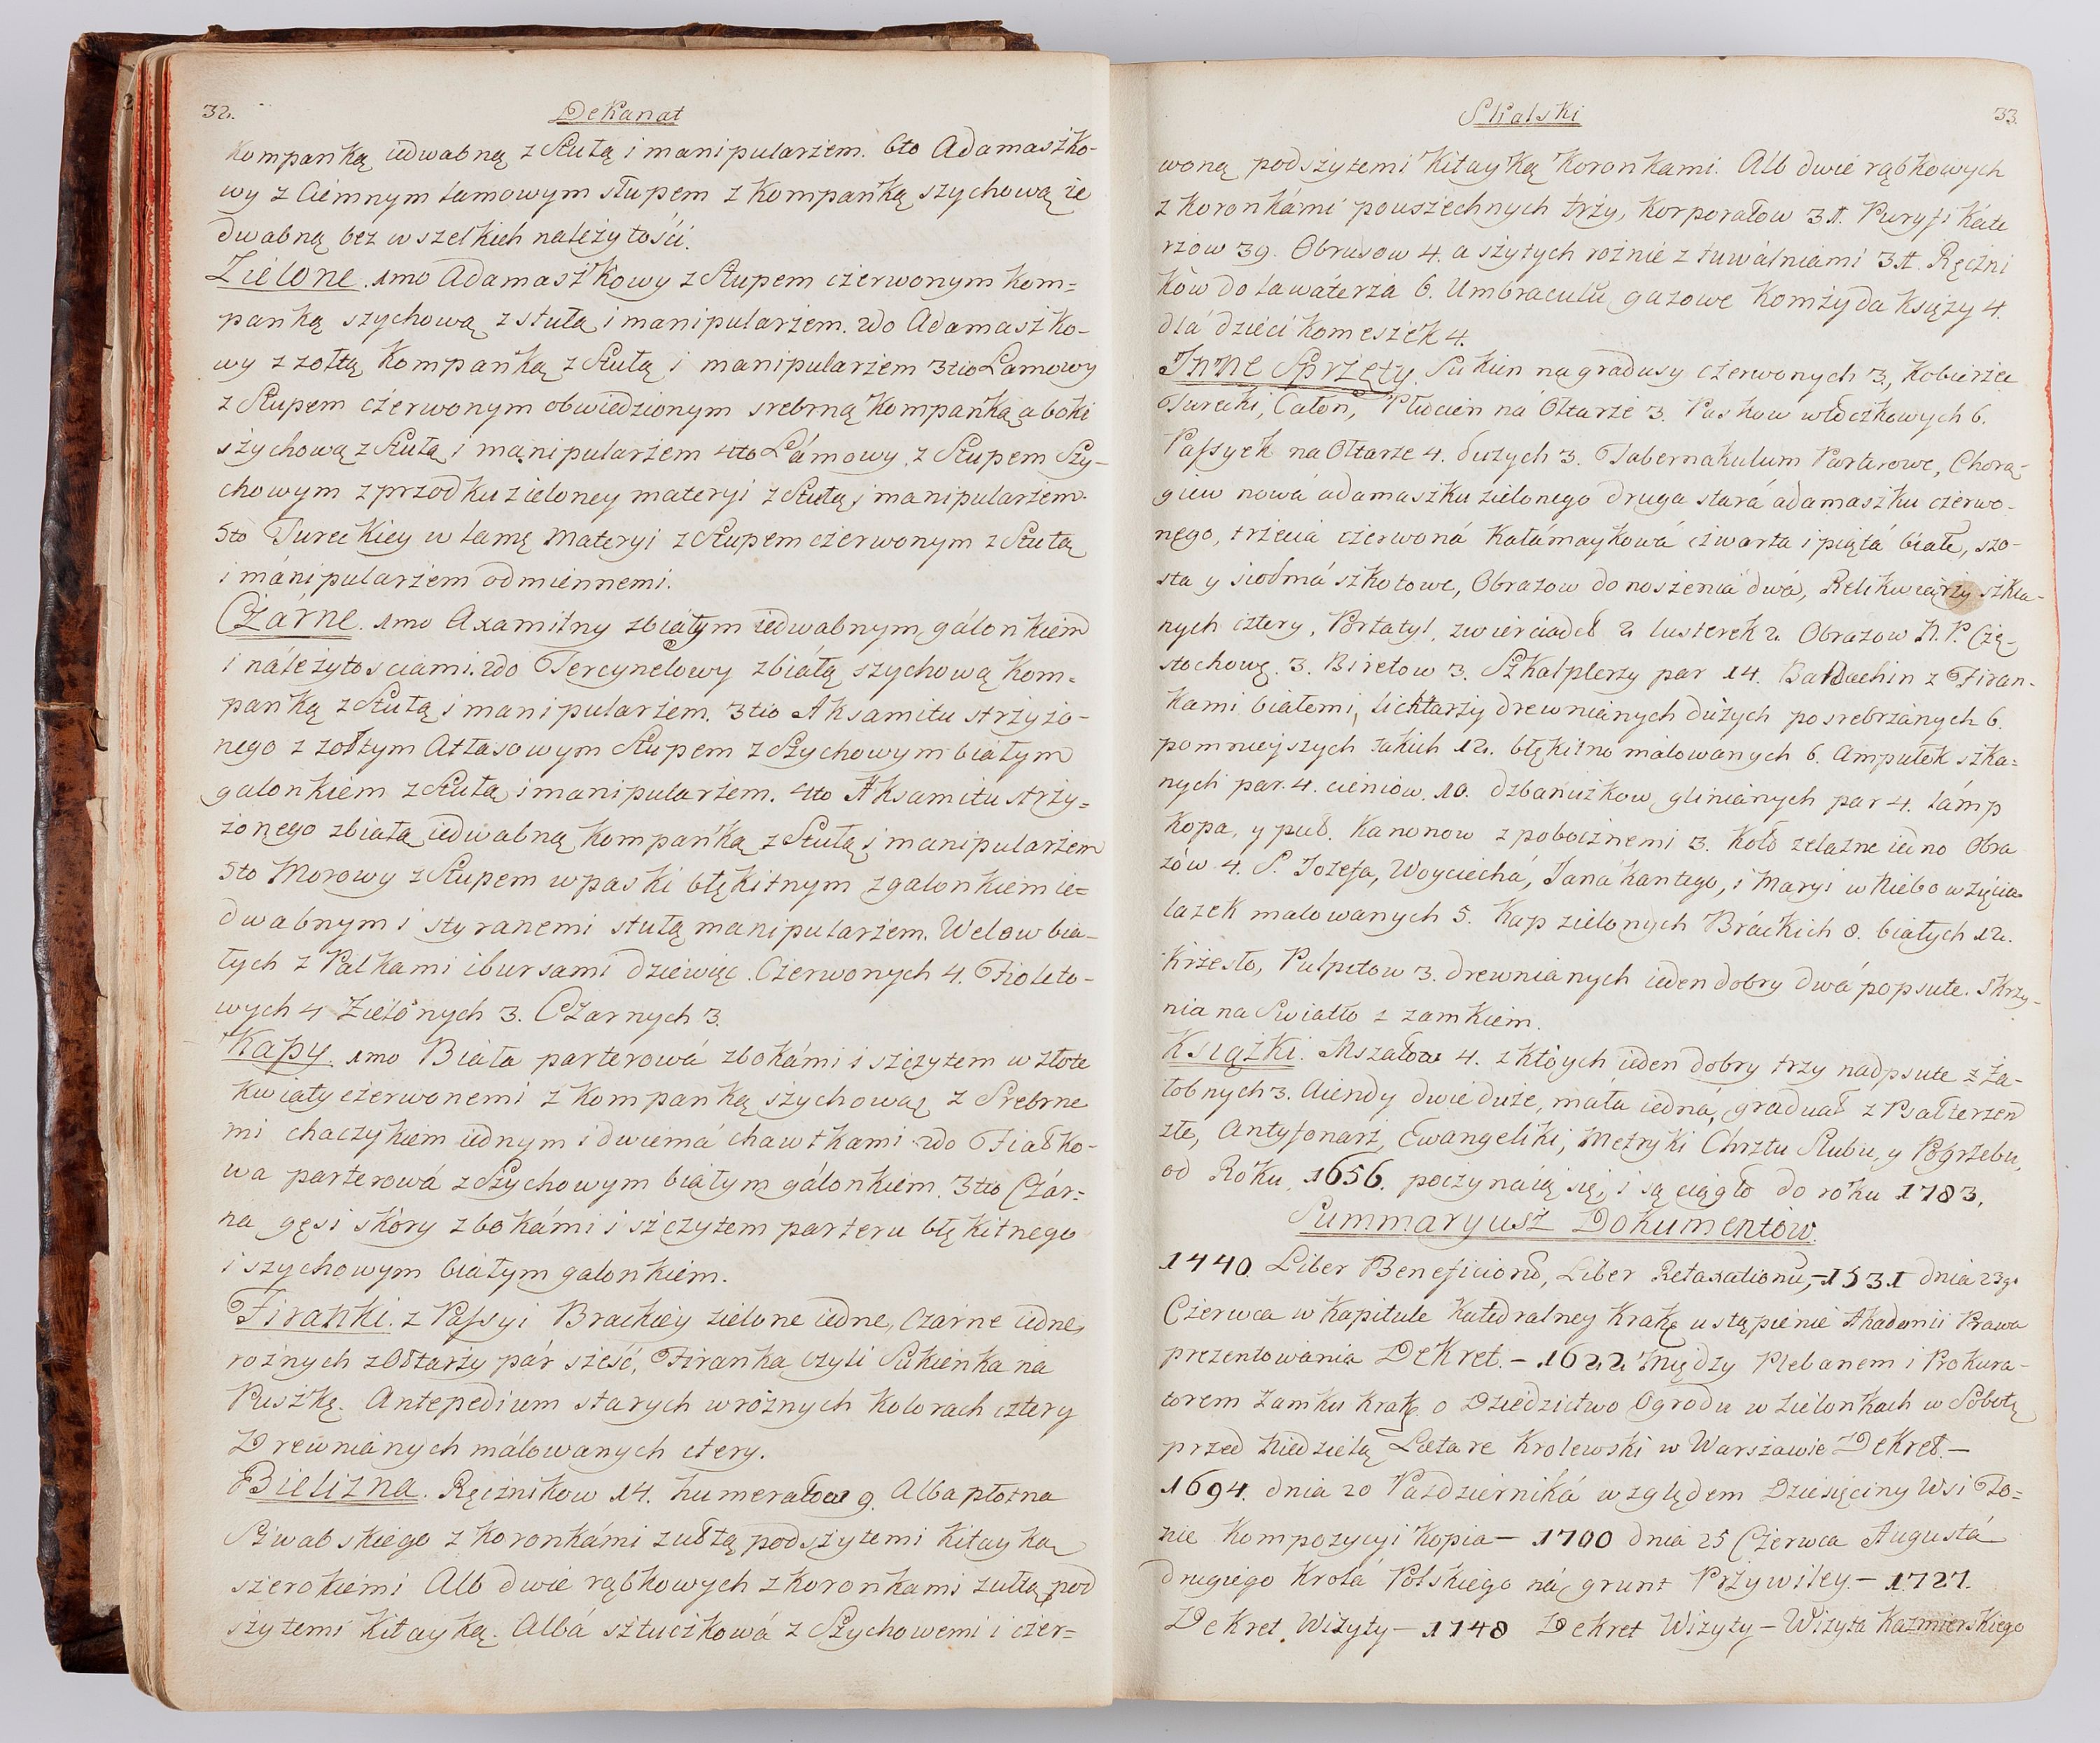 32.
Dekanat
kompanką iedwabną z Stułą i manipularzem. 6to Adamaszko-
wy z Ciemnym lamowym słupem z kompanką szychową ie
dwabną bez wszelkich należytości.
Zielone. 1mo Adamaszkowy z Słupem czerwonym kom=
panką szychową z stułą i manipularzem. 2do Adamaszko-
wy z zołtą kompanką z Stułą i manipularzem 3tio Lamowy
z Słupem czerwonym obwiedzionym srebrną kompanką a boki
szychową z Stułą i manipularzem 4to Lámowy z Słupem Szy-
chowym z przodku zieloney materyi z Stułą i manipularzem.
5to Tureckiey w lamę materyi z Słupem czerwonym z Stułą
i mánipularzem odmiennemi.
Czárne. 1mo Axamitny z białym iedwabnym gálonkiem
i náleżytosciami. 2do Tercynelowy z białą szychową kom=
panką z Stułą i manipularzem. 3tio Aksamitu strzyżo-
nego z zołtym Atłasowym Słupem z Szychowym białym
galonkiem z Stułą i manipularzem. 4to Aksamitu strzy=
żonego z białą iedwabną kompanką z Stułą i manipularzem
5to Morowy z Słupem w paski błękitnym z galonkiem ie=
dwabnym i styranemi stułą manipularzem. Welow bia-
łych z Palkami i bursami dziewięć. Czerwonych 4. Fioleto-
wych 4 Zielonych 3. Czarnych 3.
Kapy. 1mo Biała parterowá z bokámi i szczytem w złote
kwiaty czerwonemi z kompanką szychową z Srebrne
mi haczykiem iednym i dwiemá hawtkami 2do Fiałko-
wa parterowá z Szychowym białym gálonkiem. 3tio Czár=
na gęsi skóry z bokámi i szczytem parteru błękitnego
i szychowym białym galonkiem.
Firanki. z Passyi Brackiey zielone iedne, Czarne iedne,
roznych z Ołtarzy pár sześć, Firanka czyli Sukienka na
Puszkę. Antepedium starych w różnych kolorach cztery
Drewniánych málowanych ctery.
Bielizna. Ręcznikow 14. humerałow 9. Alba płotna
Szwabskiego z koronkámi zułtą podszytemi kitayką
szerokiemi Alb dwie rąbkowych z koronkami zułtą pod
szytemi kitayką. Albá sztuczkowá z Szychowemi i czer=
Skalski
33.
woną podszytemi kitayką koronkami. Alb dwie rąbkowych
z koronkámi pouszechnych trzy, korporałow 31. Puryfikáte
rzow 39. Obrusow 4. a szytych roznie z tuwálniami 31. Ręczni
ków do lawáterzá 6. Umbraculu gazowe komży da księży 4.
dlá dzieci komeszek 4.
Inne Sprzęty. Sukien na gradusy czerwonych 3., kobierzec
Turecki, Całon, Płocien na Ołtarze 3. Paskow włoczkowych 6.
Passyek na Ołtarze 4. dużych 3. Tabernakulum Parterowe, Chorą-
giew nowá adamaszku zielonego druga stará adamaszku czerwo-
nego, trzecia czerwoná kałámaykowá czwarta i piątá białe, szo-
sta y siodmá szkotowe, Obrazow do noszenia dwá, Relikwiarzy szkla-
nych cztery, Portatyl, zwierciadeł 2. lusterek 2. Obrazow N. P. Czę-
stochowę. 3. Biretow 3. Szkalplerzy par 14. Baldachin z Firan-
kami białemi, lichtarzy drewniánych dużych posrebrzánych 6.
pomnieyszych takich 12. błękitno málowanych 6. Ampułek szka=
nych par. 4. cieniow. 10. dzbanuszkow gliniánych par 4. lámp
kopa, y puł. Kanonow z pobocznemi 3. koło zelazne iedno Obra
zów 4. S. Jozefa, Woyciechá, Janá kantego, i Maryi w Niebowzięcia
lazek malowanych 5. kap zielonych Bráckich 8. białych 12.
krzesło, Pulpitow 3. drewnianych ieden dobry dwá popsute. Skrzy-
nia na Swiatło z zamkiem.
Książki. Mszałow 4. z których ieden dobry trzy nadpsute z Ża-
łobnych 3. Aiendy dwie duże, máła iedná, graduał z Psałterzem
złe, Antyfonarz, Ewangeliki, Metryki Chrztu Slubu, y Pogrzebu,
od Roku 1656. poczynaią się, i są ciągło do roku 1783.
Summaryusz Dokumentów.
1440. Liber Beneficiorū, Liber Retaxationū, – 1531 dnia 23go
Czierwca w kapitule katedralney krakę. ustąpienie Akademii Prawa
prezentowania Dekret. – 1622 między Plebanem i Prokura-
torem Zamku krakę. o Dziedzictwo Ogrodu w Zielonkach w Sobotę
przed Niedzielą Lætare krolewski w Warszawie Dekret. –
1694. dnia 20 Pazdzierniká względem Dziesięciny Wsi To=
nie kompozycyi kopia – 1700 dnia 25 Czerwca Augustá
drugiego krolá Polskiego ná grunt Przywiley. – 1727.
Dekret Wizyty – 1748 Dekret Wizyty – Wizyta Kazmierskiego